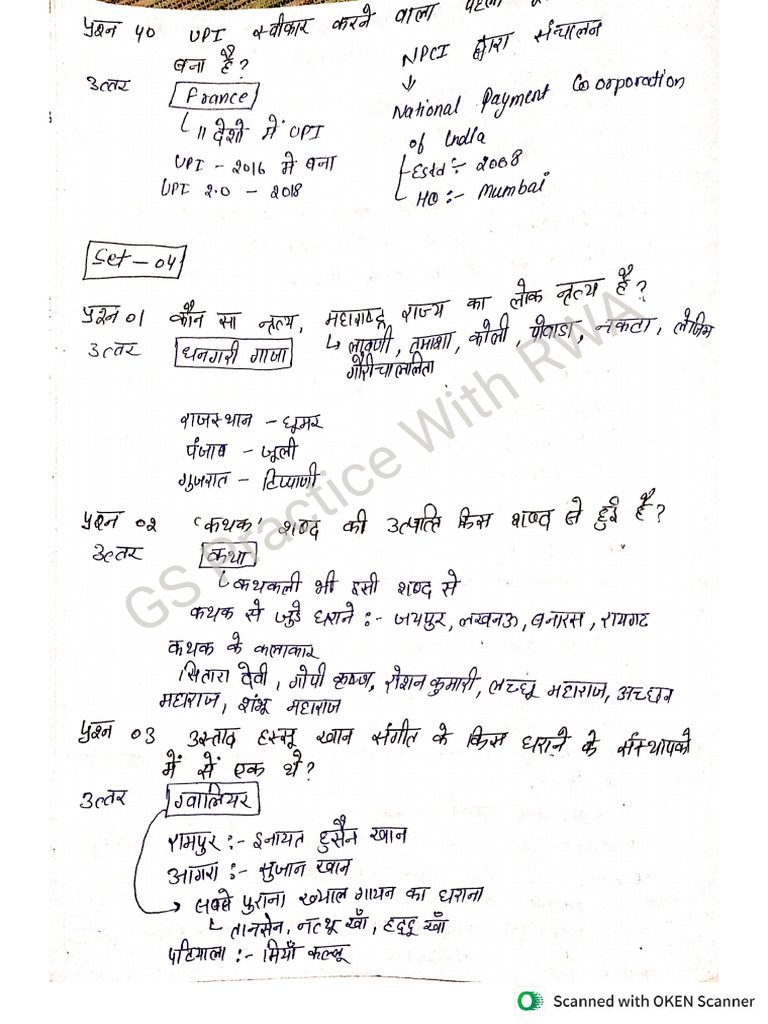 प्रश्न 40 UPI स्वीकार करने वाला पहला
बना है?
उत्तर France
॥ देशो में UPI
UPI - 2016 मे बना
UPI 2.0 - 2018
NPCI द्वारा संचालन
National Payment Coorporation
of India
Estd :- 2008
HO :- Mumbai
Set - 04
प्रश्न 01 कौन सा नृत्य, महाराष्ट्र राज्य का लोक नृत्य है?
उत्तर धनगरी गाजा
लावणी, तमाशा, कोली, पोवाडा, नकटा, लेजिम
गौरीचाललिता
राजस्थान - घूमर
पंजाब - जूली
गुजरात - टिप्पाणी
प्रश्न 02 'कथक' शब्द की उत्पत्ति किस शब्द से हुई है?
उत्तर कथा
कथकली भी इसी शब्द से
कथक से जुडे घराने :- जयपुर, लखनऊ, बनारस, रायगढ
कथक के कलाकार
सितारा देवी, गोपी कृष्ण, रोशन कुमारी, लच्छू महाराज, अच्छन
महाराज, शंभू महाराज
प्रश्न 03 उस्ताद हस्सू खान संगीत के किस घराने के संस्थापको
में से एक थे?
उत्तर ग्वालियर
रामपुर :- इनायत हुसैन खान
आगरा :- सुजान खान
सबसे पुराना ख्याल गायन का घराना
तानसेन, नत्थू खाँ, हद्दू खाँ
पटियाला :- मियाँ कल्लू
GS Practice With RWA
Scanned with OKEN Scanner